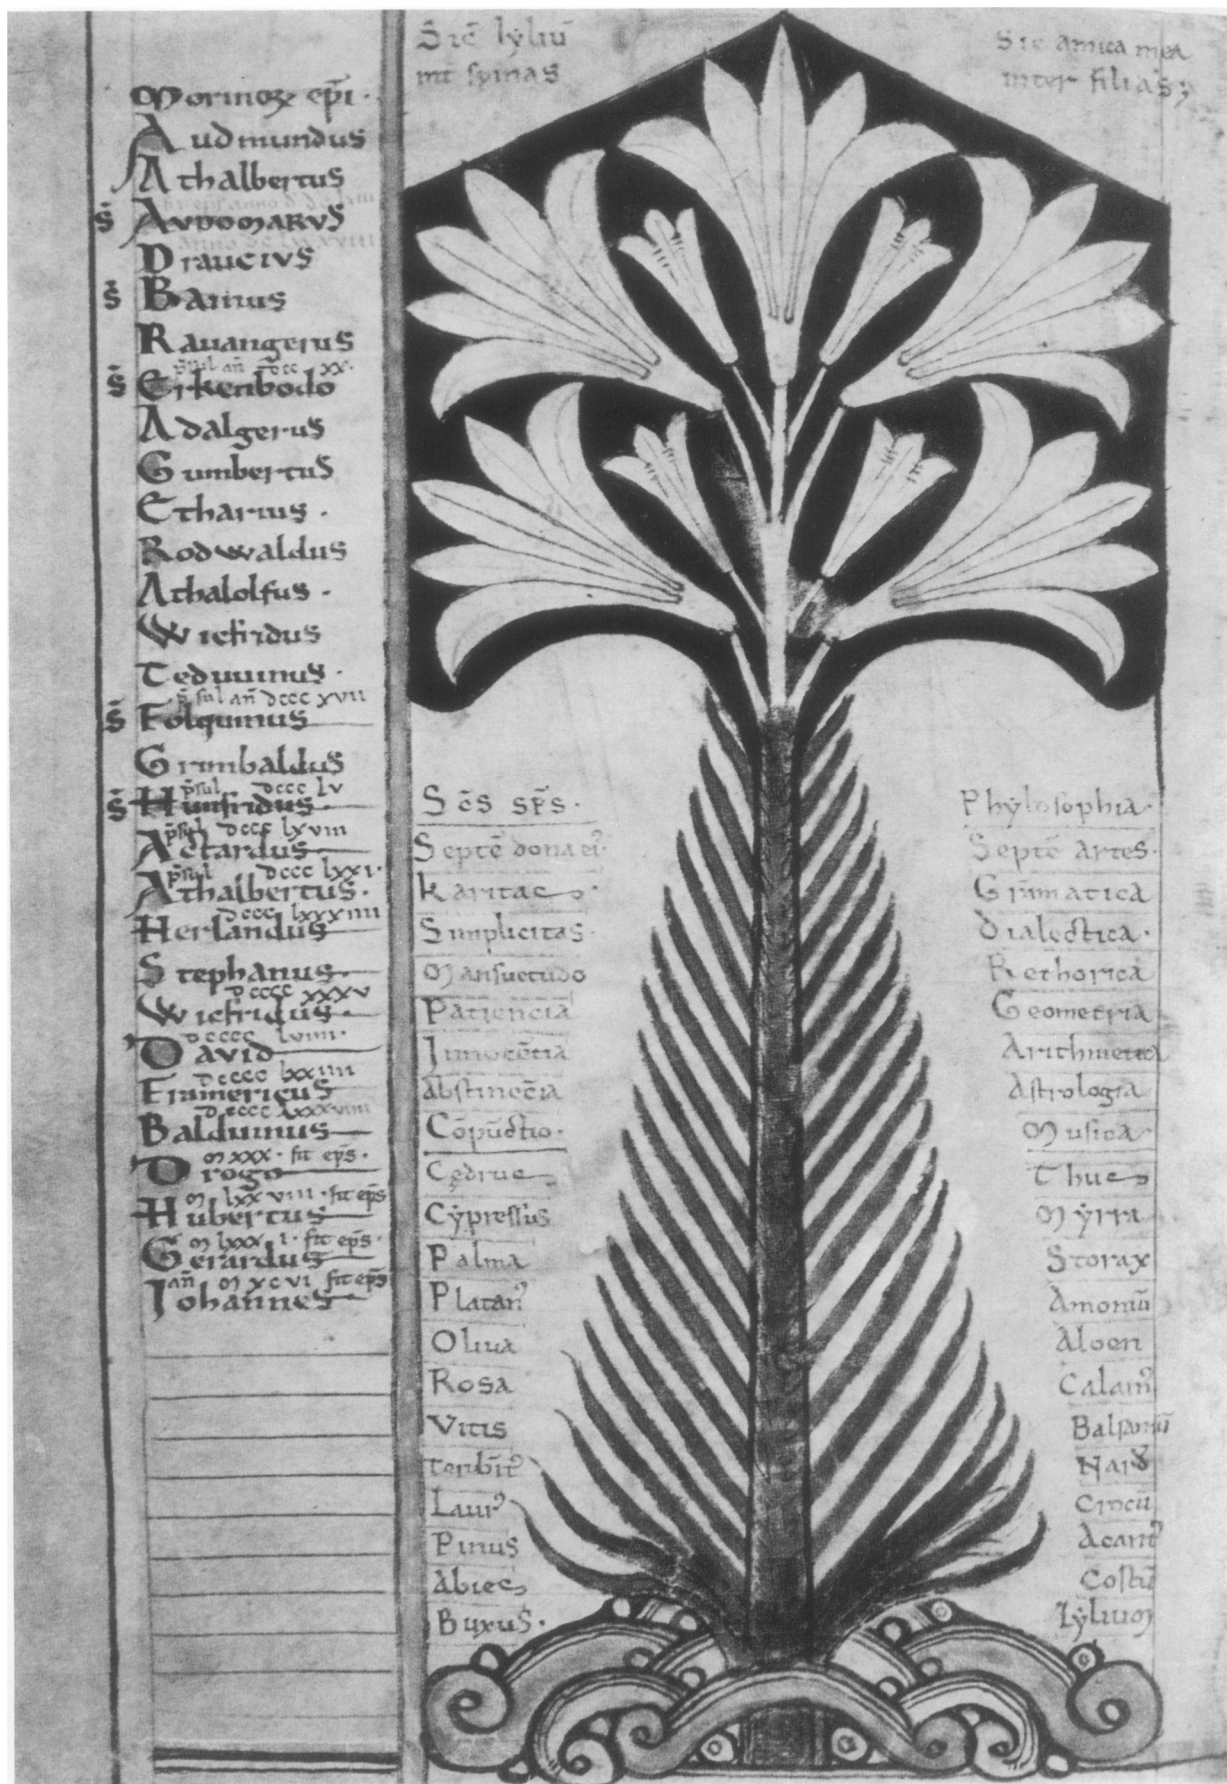 Sic̄ lẏliū
int̄ spinas
Sic amica mea
inter filias;
Morinoꝝ ep̄i·
Audmundus
Athalbertus
S̄ AVDOMARVS
Draucius
S̄ Bainus
Rauangerus
p̄sul an̄ dcc xx·
S̄ Erkenbodo
Adalgerus
Gumbertus
Etharius·
Rodwaldus
Athalolfus·
Wicfridus
Teduuinus·
p̄sul an̄ dccc xvii
S̄ Folquinus
Grimbaldus
p̄sul dccc lv
S̄ Hunfridus·
p̄sul dccc lxviii
Actardus
p̄sul dccc lxxi·
Athalbertus·
dccc lxxxiiii
Herlandus
Stephanus·
dcccc xxxv
Wicfridus·
dcccc lviiii·
David
dcccc lxxiiii
Framericus
Balduinus
M xxx· fit ep̄s·
Drogo
M lxxviii· fit ep̄s
Hubertus
M lxxxi· fit ep̄s·
Gerardus
an̄ M xcvi fit ep̄s
Iohannes
Sc̄s sp̄s·
Septē dona ei᾽
Karitas·
Simplicitas·
Mansuetudo
Patiencia
Innocētia
Abstinēcia
Cōpūctio·
Cędrus
Cẏpressus
Palma
Platan᾽
Oliua
Rosa
Vitis
Terebīt᾽
Laur᾽
Pinus
Abies
Buxus·
Phẏlosophia·
Septē artes·
Gramatica
Dialectica·
Rethorica
Geometria
Arithmetica
Astrologia
Musica·
Thus
Mẏrra
Storax
Amomū
Aloen
Calam᾽
Balsamū
Nard᾽
Crocū
Acant᾽
Costū
Lẏlium